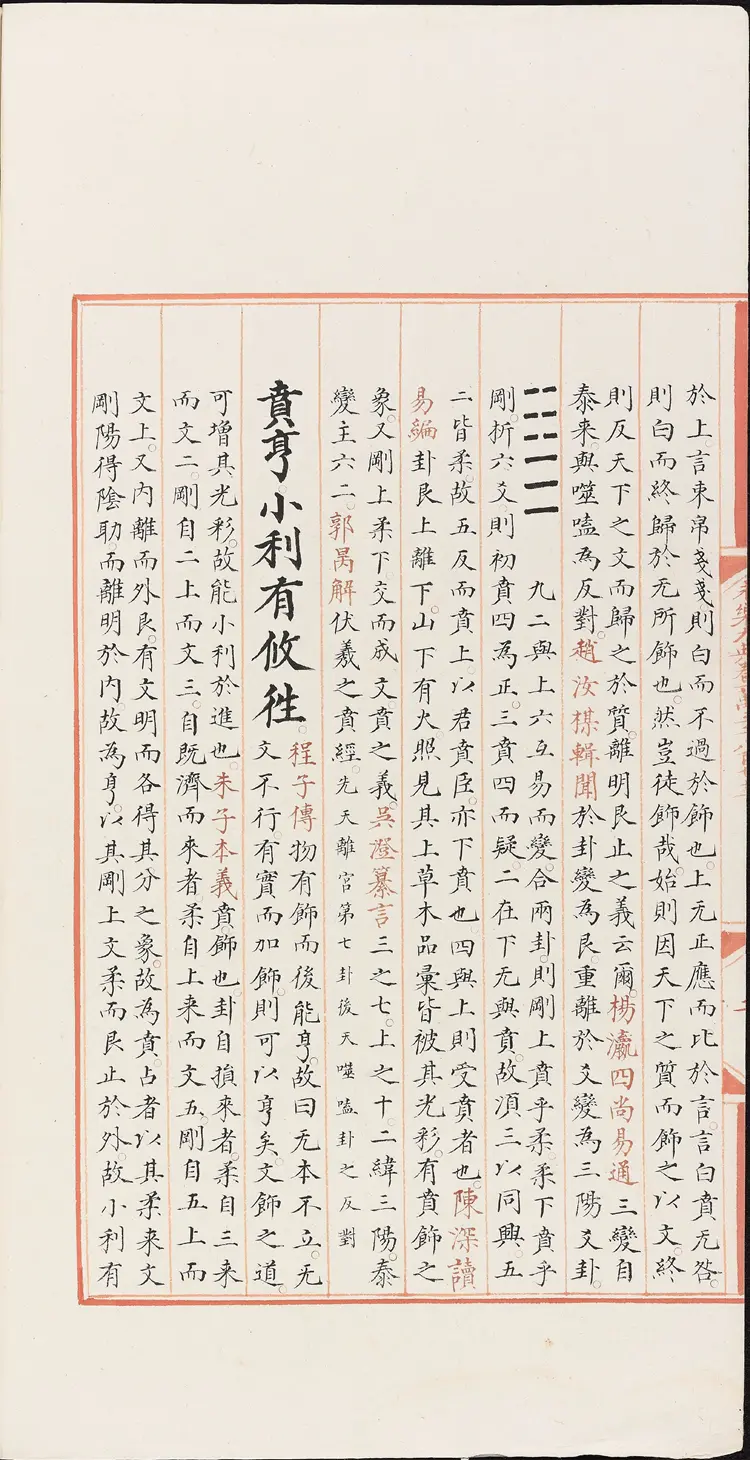 於上言束帛戔戔則白而不過於飾也上无正應而比於言言白賁无咎
則白而終歸於无所飾也然豈徒飾哉始則因天下之質而飾之以文終
則反天下之文而歸之於質離明艮止之義云爾楊瀛四尚易通三變自
泰来與噬嗑為反對趙汝楳輯聞於卦變為艮重離於爻變為三陽爻卦
九二與上六互易而變合兩卦則剛上賁乎柔柔下賁乎
剛折六爻則初賁四為正三賁四而疑二在下无與賁故湏三以同興五
二皆柔故五反而賁上以君賁臣亦下賁也四與上則受賁者也陳深讀
易編卦艮上離下山下有火照見其上草木品彙皆被其光彩有賁飾之
象又剛上柔下交而成文賁之義吳澄纂言三之七上之十二緯三陽泰
變主六二郭昺解伏羲之賁經先天離宮第七卦後天噬嗑卦之反對
賁亨小利有攸徃
程子傳物有飾而後能亨故曰无本不立无
文不行有實而加飾則可以亨矣文飾之道
可增其光彩故能小利於進也朱子本義賁飾也卦自損來者柔自三来
而文二剛自二上而文三自既濟而來者柔自上来而文五剛自五上而
文上又内離而外艮有文明而各得其分之象故為賁占者以其柔来文
剛陽得陰助而離明於内故為亨以其剛上文柔而艮止於外故小利有